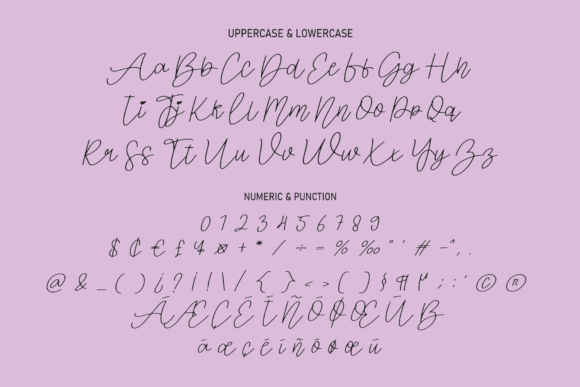 UPPERCASE & LOWERCASE
Aa Bb Cc Dd Ee Ff Gg Hh
Ii Jj Kk Ll Mm Nn Oo Pp Qq
Rr Ss Tt Uu Vv Ww Xx Yy Zz
NUMERIC & PUNCTION
0 1 2 3 4 5 6 7 8 9
$ ₵ € £ ¥ + * / ÷ = % ‰ " ' # - , .
@ & _ ( ) ¿ ? ¡ ! \ / { } < > ( ) § ¶ µ ; : ' © ®
Ã Æ Ç É Í Ñ Ó Ø Œ Ú ß
á æ ç é í ñ ó ø œ ú